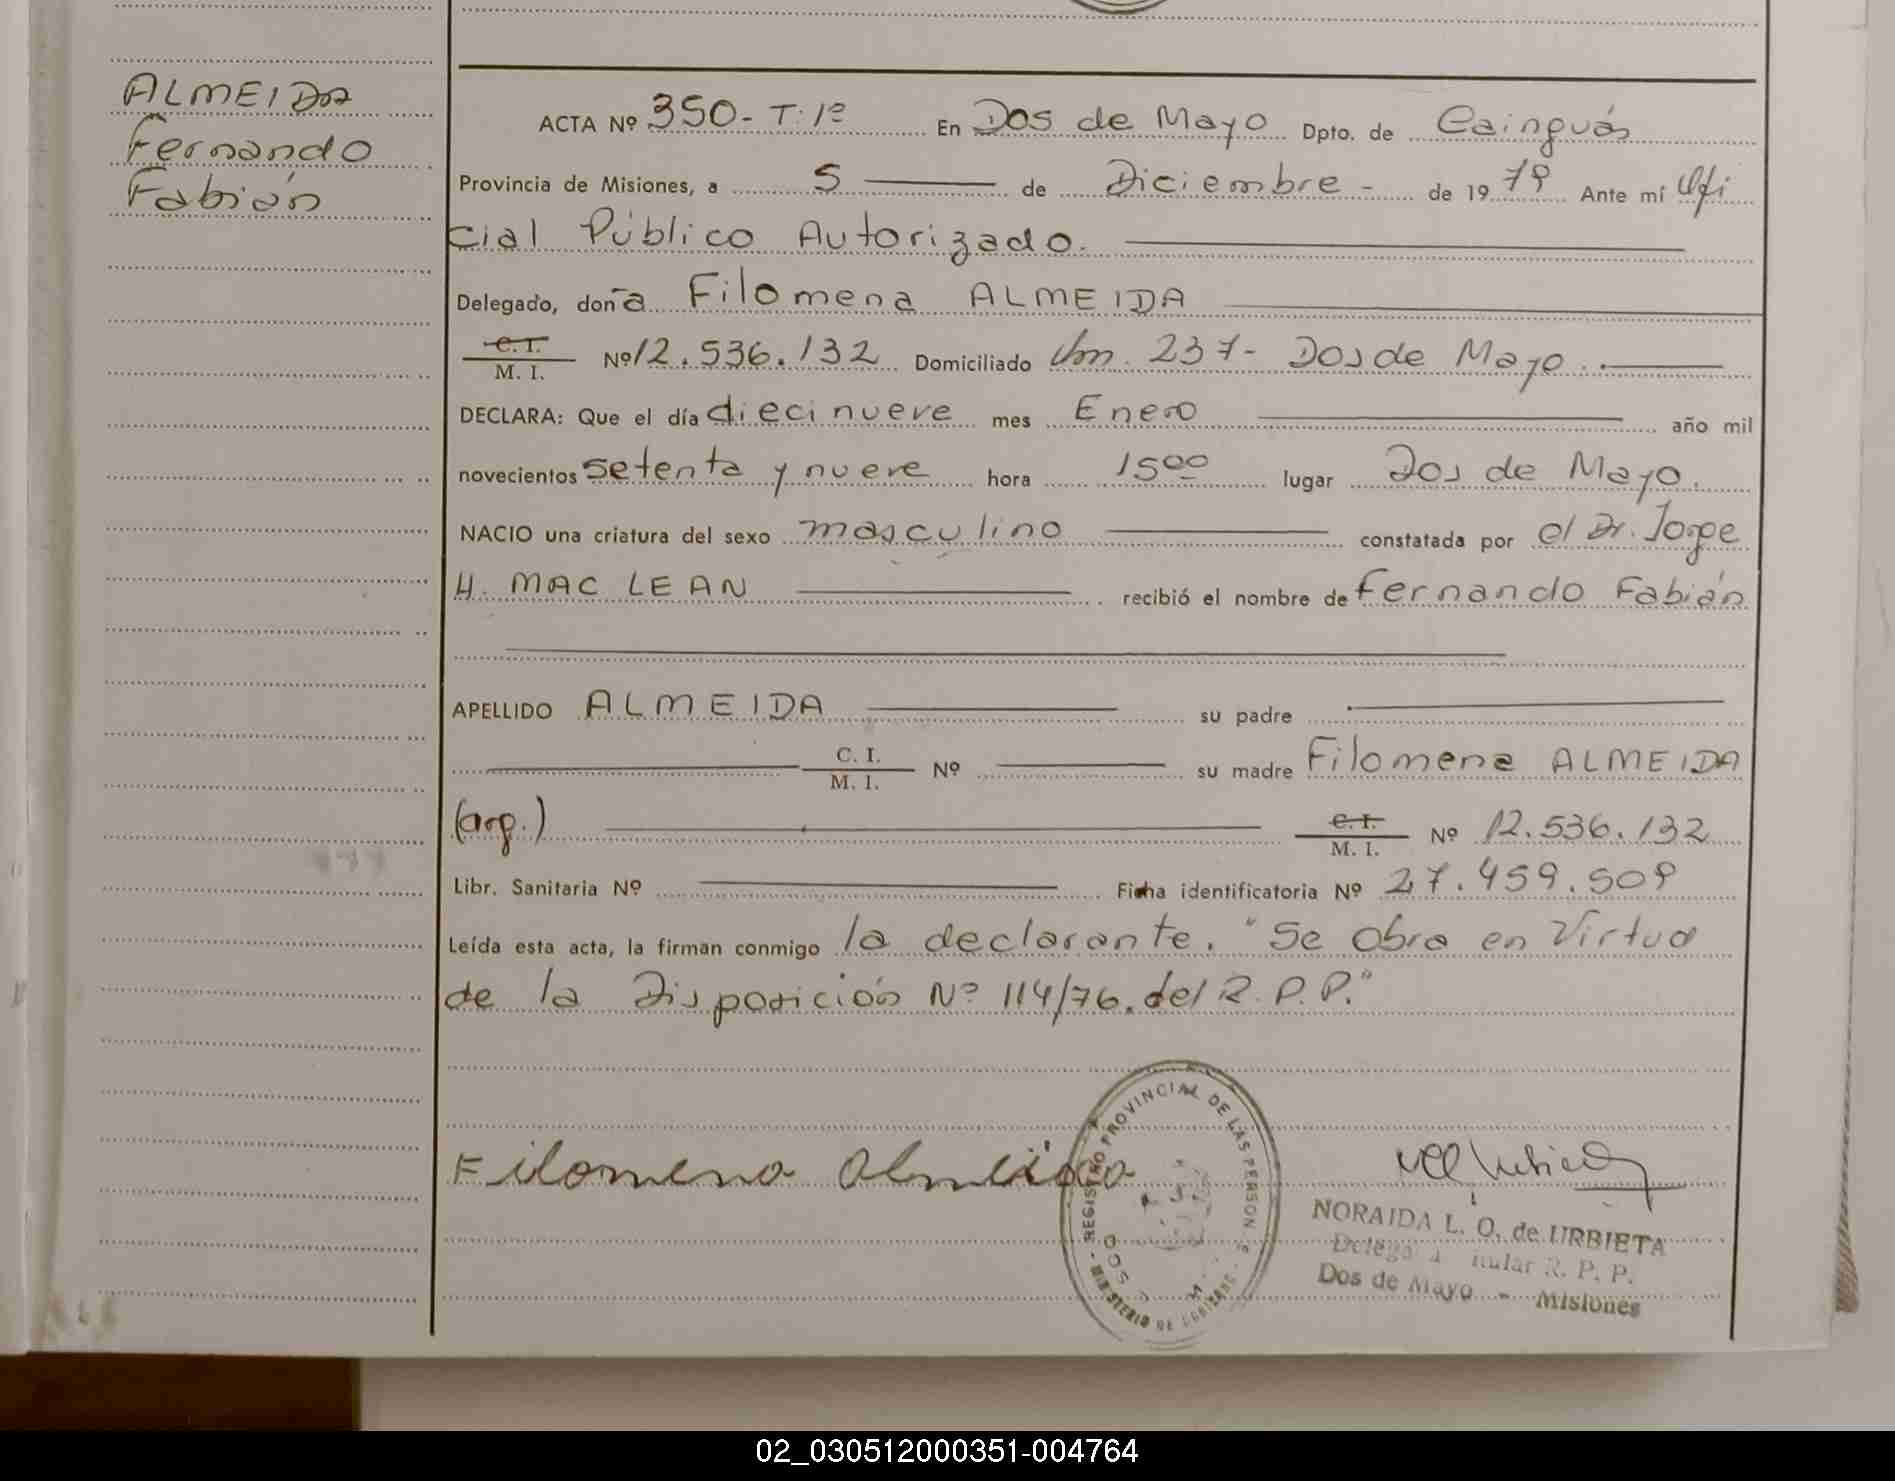 ALMEIDA
Fernando
Fabián
ACTA Nº 350- T. 1º En Dos de Mayo Dpto. de Cainguás
Provincia de Misiones, a 5 de Diciembre - de 1979 Ante mí Ofi
cial Público Autorizado.
Delegado, doña Filomena ALMEIDA
C. I.
M. I. Nº 12.536.132 Domiciliado Km. 237- Dos de Mayo.
DECLARA: Que el día diecinueve mes Enero año mil
novecientos setenta y nueve hora 15ºº lugar Dos de Mayo.
NACIO una criatura del sexo masculino constatada por el Dr. Jorge
H. MAC LEAN recibió el nombre de Fernando Fabián
APELLIDO ALMEIDA su padre
C. I.
M. I. Nº su madre Filomena ALMEIDA
(arg.) C. I.
M. I. Nº 12.536.132
Libr. Sanitaria Nº Ficha identificatoria Nº 27.459.509
Leída esta acta, la firman conmigo la declarante. "Se obra en Virtud
de la Disposición Nº 114/76. del R. P. P."
Filomena Almeida
REGISTRO PROVINCIAL DE LAS PERSON
MINISTERIO DE
NORAIDA L. O. de URBIETA
R. P. P.
Dos de Mayo - Misiones
02_030512000351-004764